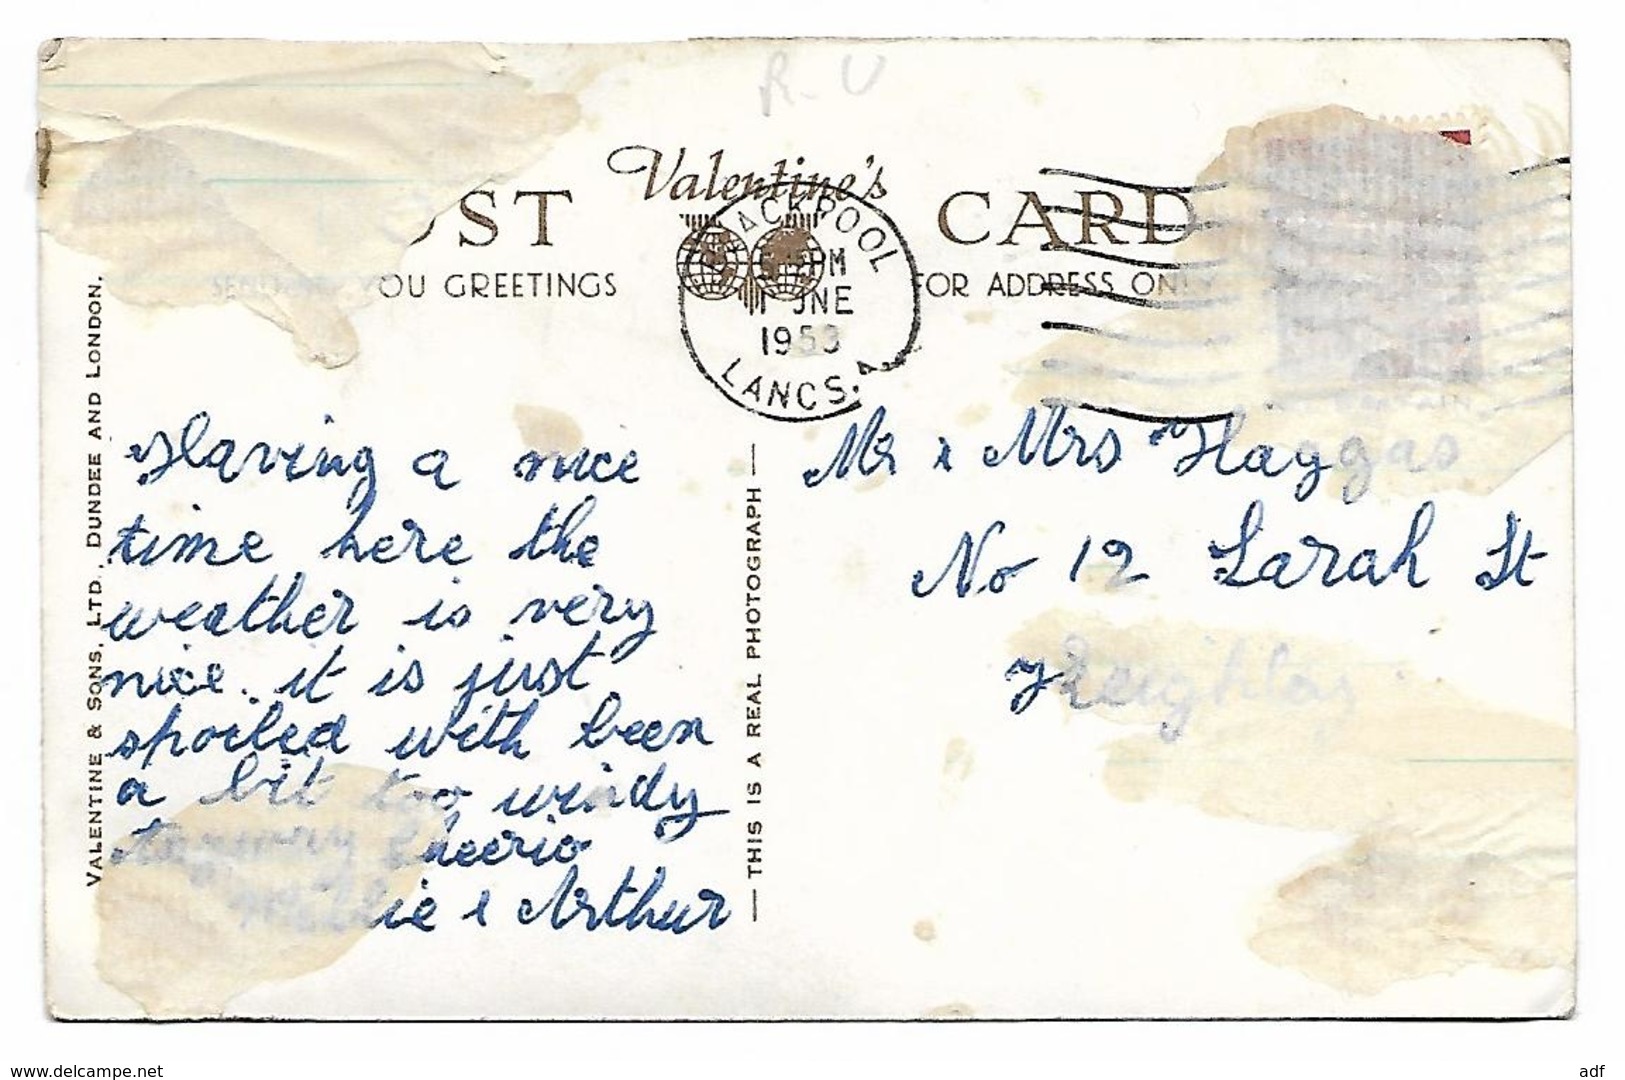 R. U
Valentine's
OST CARD
SEND YOU GREETINGS
FOR ADDRESS ONLY
BLACKPOOL
PM
1 JNE
1953
LANCS. A
VALENTINE & SONS, LTD., DUNDEE AND LONDON.
Having a nice
time here the
weather is very
nice. it is just
spoiled with been
a bit too windy
cheerio
& Arthur
— THIS IS A REAL PHOTOGRAPH —
Mr & Mrs Haggas
No 12 Sarah St
www.delcampe.net
adf